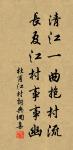 清江一曲抱村流
長夏江村事事幽
杜甫江村詩典綱春